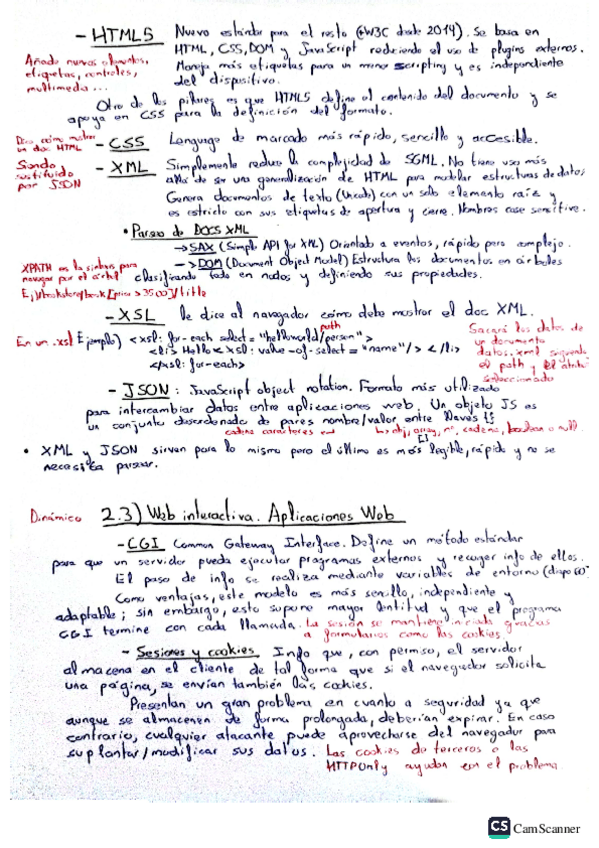 - HTML5 Nuevo estándar para el resto (W3C desde 2014). Se basa en
HTML, CSS, DOM y JavaScript reduciendo el uso de plugins externos.
Añade nuevos elementos,
etiquetas, controles,
multimedia...
Maneja más etiquetas para un menor scripting y es independiente
del dispositivo.
Otro de los pilares es que HTML5 define el contenido del documento y se
apoya en CSS para la definición del formato.
Dice cómo mostrar
un doc HTML
- CSS Lenguage de marcado más rápido, sencillo y accesible.
Siendo
sustituido
por JSON
- XML Simplemente reduce la complejidad de SGML. No tiene uso más
allá de ser una generalización de HTML para modelar estructuras de datos
Genera documentos de texto (Unicode) con un solo elemento raíz y
es estricto con sus etiquetas de apertura y cierre. Nombres case sensitive.
• Parseo de DOCS XML
→ SAX (Simple API for XML) Orientado a eventos, rápido pero complejo.
→ DOM (Document Object Model) Estructura los documentos en árboles
XPATH es la sintaxis para
navegar por el árbol
clasificando todo en nodos y definiendo sus propiedades.
Ej)/bookstore/book[price>3500]/title
- XSL le dice al navegador cómo debe mostrar el doc XML.
path
En un .xsl Ejemplo) <xsl: for-each select="helloworld/person">
<li> Hello <xsl: value-of-select="name"/> </li>
</xsl: for-each>
Sacará los datos de
un documento
datos.xml siguiendo
el path y el
seleccionado
- JSON: JavaScript object notation. Formato más utilizado
para intercambiar datos entre aplicaciones web. Un objeto JS es
un conjunto desordenado de pares nombre/valor entre llaves {}
cadena caracteres
↳ obj, array, nº, cadena, boolean o null.
[]
• XML y JSON sirven para lo mismo pero el último es más legible, rápido y no se
necesita parsear.
Dinámico 2.3) Web interactiva. Aplicaciones Web
- CGI Common Gateway Interface. Define un método estándar
para que un servidor pueda ejecutar programas externos y recoger info de ellos.
El paso de info se realiza mediante variables de entorno (diapo 60)
Como ventajas, este modelo es más sencillo, independiente y
adaptable; sin embargo, esto supone mayor lentitud y que el programa
CGI termine con cada llamada. La sesión se mantiene iniciada gracias
a formularios como las cookies.
- Sesiones y cookies Info que, con permiso, el servidor
almacena en el cliente de tal forma que si el navegador solicita
una página, se envían también las cookies.
Presentan un gran problema en cuanto a seguridad ya que
aunque se almacenen de forma prolongada, deberían expirar. En caso
contrario, cualquier atacante puede aprovecharse del navegador para
suplantar/modificar sus datos. Las cookies de terceros o las
HTTPOnly ayudan con el problema
CS CamScanner